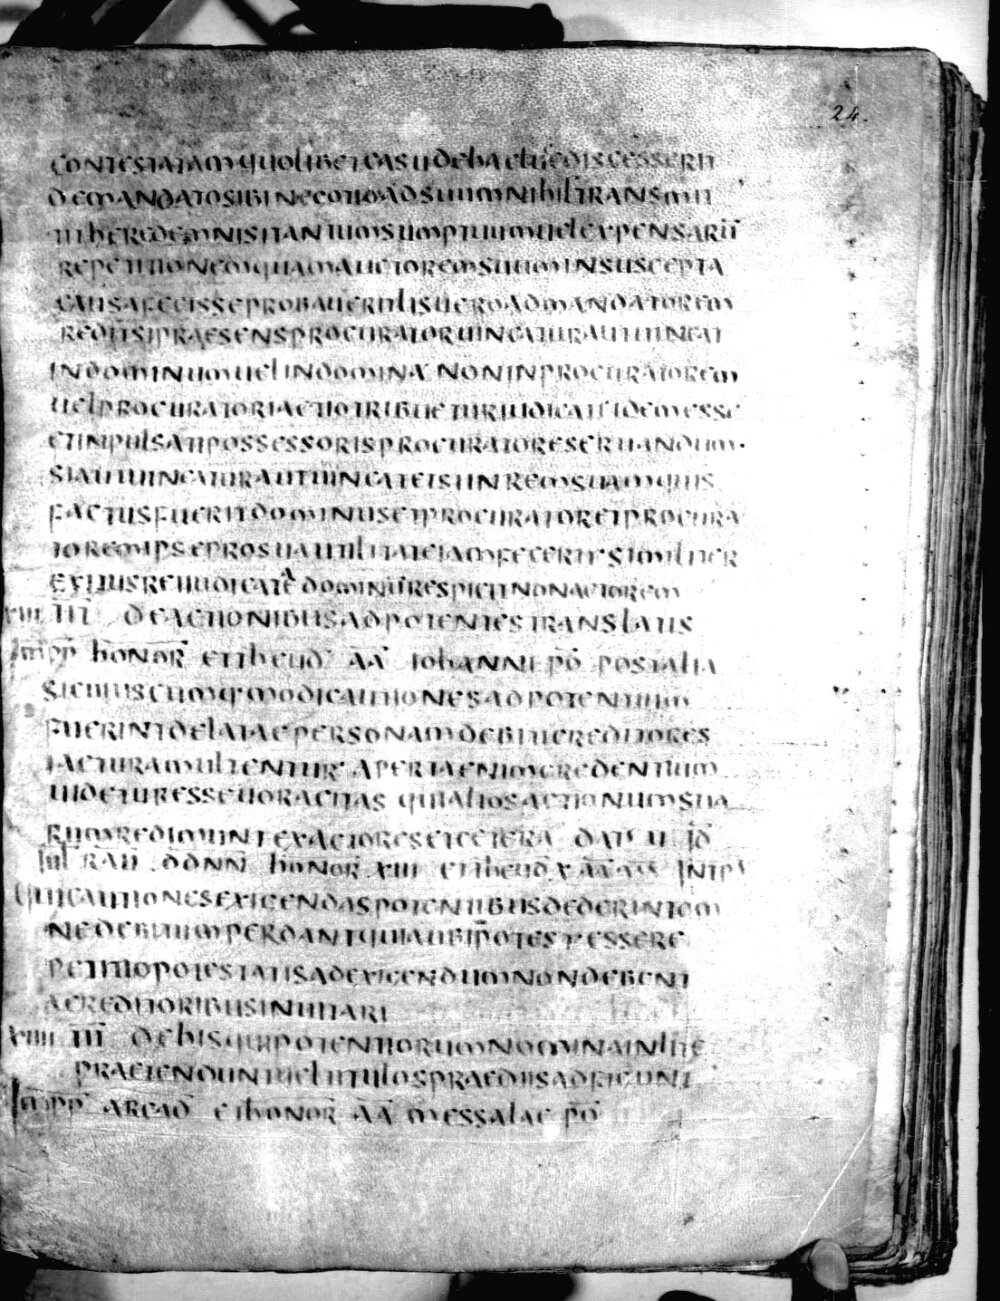 24.
CONTESTATAM QUOLIBET CASU DE HAC LUCE DISCESSERIT
DE MANDATO SIBI NEGOTIO AD SUUM NIHIL TRANSMIT
TIT HEREDEM NISI TANTUM SUMPTUUM UEL EXPENSARŪ
REPETITIONEM QUAM AUCTOREM SUUM IN SUSCEPTA
CAUSA FECISSE PROBAUERIT LIS UERO AD MANDATOREM
REDIT SI PRAESENS PROCURATOR UINCATUR AUT UINCAT
IN DOMINUM UEL IN DOMINA NON IN PROCURATOREM
UEL PROCURATORI ACTIO TRIBUETUR IUDICATI IDEM ESSE
ET INPULSATI POSSESSORIS PROCURATORE SERUANDUM·
SI AUT UINCATUR AUT UINCAT ET SI IN REM SUAM QUIS
FACTUS FUERIT DOMINUS ET PROCURATOR ET PROCURA
TOREM IPSE PRO SUA UTILITATE IAM FECERIT SIMILITER
EXITUS REI IUDICATAE DOMINŪ RESPICIT NON ACTOREM
XIII TIT̄ DE ACTIONIBUS AD POTENTES TRANSLATIS
IMPP̄ HONOR̄ ET THEUD̄ ĀĀ IOHANNI PŌ POST ALIA
SI CUIUSCUMQ MODI CAUTIONES AD POTENTIUM
FUERINT DELATAE PERSONAM DEBITI CREDITORES
IACTURA MULTENTUR APERTA ENIM CREDENTIUM
UIDETUR ESSE UORACITAS QUI ALIOS ACTIONUM SUA
RUM REDIMUNT EXACTORES ET CETERA DAT U ID̄
IUL RAU DD NN HONOR XIII ET THEUD X ĀĀ INTPT
QUI CAUTIONES EXIGENDAS POTENTIBUS DEDERINT OM
NE DEBITUM PERDANT QUIA UBI POTEST ESSE RE
PETITIO POTESTATIS AD EXIGENDUM NON DEBENT
A CREDITORIBUS INUITARI
XIIII TIT̄ DE HIS QUI POTENTIORUM NOMINA IN LITE
PRAETENDUNT UEL TITULOS PRAEDIIS ADFIGUNT
IMPP̄ ARCAD̄ ET HONOR̄ ĀĀ MESSALAE PŌ